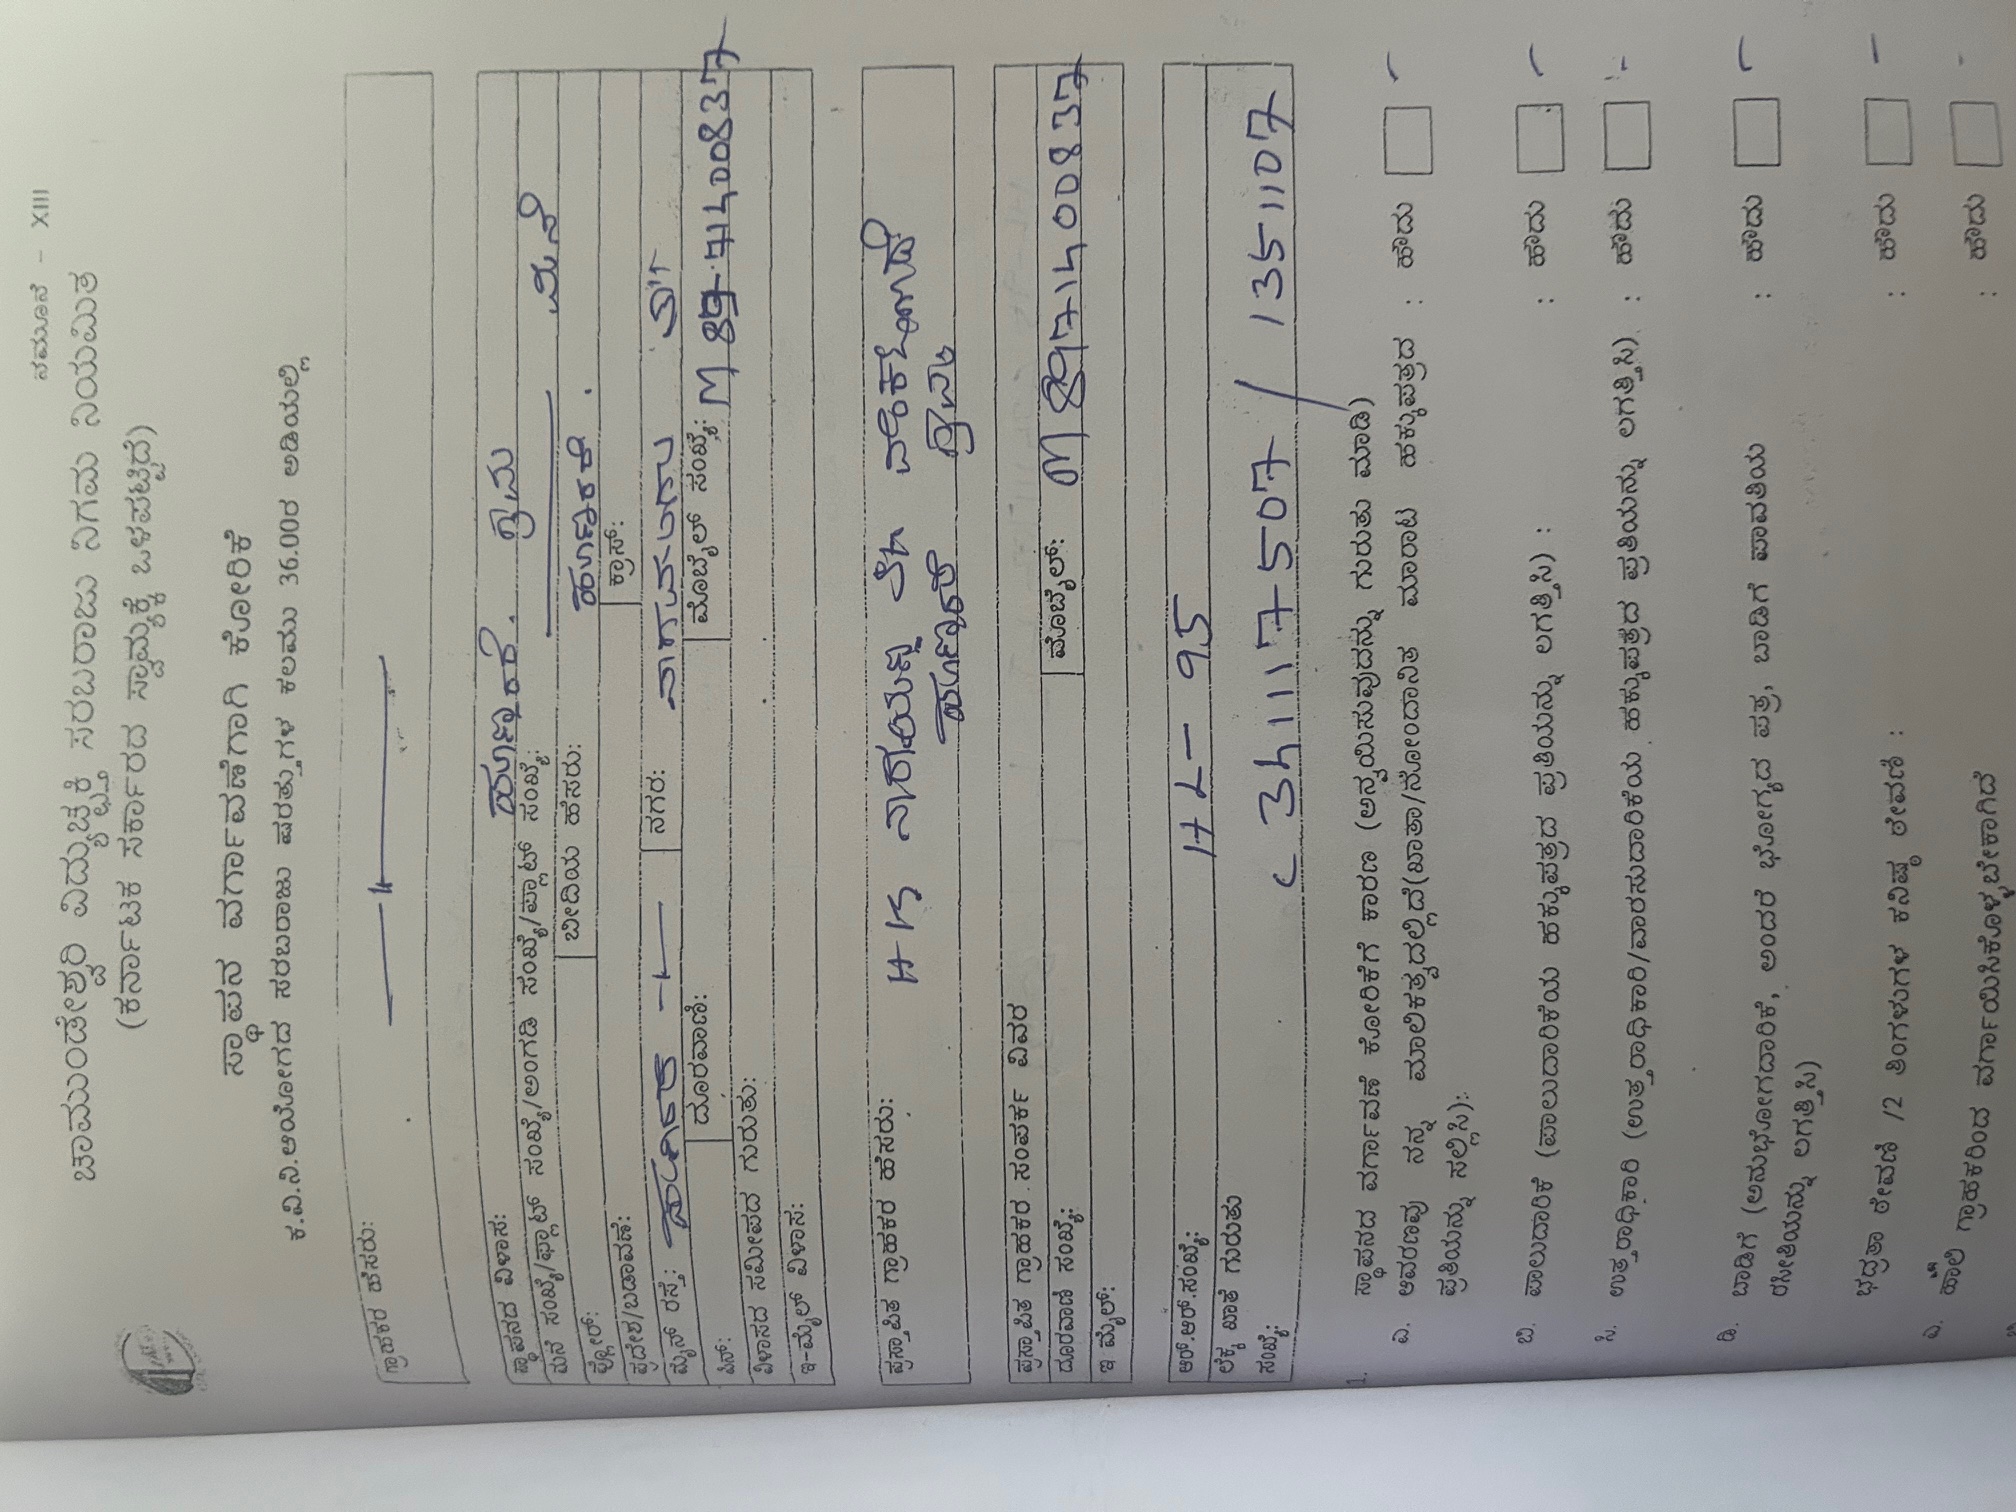 ನಮೂನೆ - XIII
ಚಾಮುಂಡೇಶ್ವರಿ ವಿದ್ಯುಚ್ಛಕ್ತಿ ಸರಬರಾಜು ನಿಗಮ ನಿಯಮಿತ
(ಕರ್ನಾಟಕ ಸರ್ಕಾರದ ಸ್ವಾಮ್ಯಕ್ಕೆ ಒಳಪಟ್ಟಿದೆ)
ಸ್ಥಾಪನ ವರ್ಗಾವಣೆಗಾಗಿ ಕೋರಿಕೆ
ಕ.ವಿ.ನಿ.ಆಯೋಗದ ಸರಬರಾಜು ಷರತ್ತುಗಳ ಕಲಮು 36.00ರ ಅಡಿಯಲ್ಲಿ
ಗ್ರಾಹಕರ ಹೆಸರು:
ಸ್ಥಾಪನದ ವಿಳಾಸ: ಗ್ರಾಮ
ಮನೆ ಸಂಖ್ಯೆ/ಫ್ಲಾಟ್ ಸಂಖ್ಯೆ/ಅಂಗಡಿ ಸಂಖ್ಯೆ/ಪ್ಲಾಟ್ ಸಂಖ್ಯೆ: ಮನೆ
ಫ್ಲೋರ್: ಬೀದಿಯ ಹೆಸರು:
ಪ್ರದೇಶ/ಬಡಾವಣೆ: ಕ್ರಾಸ್:
ಮೈನ್ ರಸ್ತೆ: ನಗರ: ನಾಗಮಂಗಲ ತಾ॥
ಪಿನ್: ದೂರವಾಣಿ: ಮೊಬೈಲ್ ಸಂಖ್ಯೆ: M 8971400837
ವಿಳಾಸದ ಸಮೀಪದ ಗುರುತು:
ಇ-ಮೈಲ್ ವಿಳಾಸ:
ಪ್ರಸ್ತಾಪಿತ ಗ್ರಾಹಕರ ಹೆಸರು: ನಾರಾಯಣ
ಪ್ರಸ್ತಾಪಿತ ಗ್ರಾಹಕರ ಸಂಪರ್ಕ ವಿವರ
ದೂರವಾಣಿ ಸಂಖ್ಯೆ: ಮೊಬೈಲ್: M 8971400837
ಇ ಮೈಲ್:
ಆರ್.ಆರ್.ಸಂಖ್ಯೆ: HL - 95
ಲೆಕ್ಕ ಖಾತೆ ಗುರುತು
ಸಂಖ್ಯೆ: 34117507 / 1351107
1. ಸ್ಥಾಪನದ ವರ್ಗಾವಣೆ ಕೋರಿಕೆಗೆ ಕಾರಣ (ಅನ್ವಯಿಸುವುದನ್ನು ಗುರುತು ಮಾಡಿ)
ಎ. ಆವರಣವು ನನ್ನ ಮಾಲಿಕತ್ವದಲ್ಲಿದೆ(ಖಾತಾ/ನೋಂದಾನಿತ ಮಾರಾಟ ಹಕ್ಕುಪತ್ರದ : ಹೌದು
ಪ್ರತಿಯನ್ನು ಸಲ್ಲಿಸಿ):
ಬಿ. ಪಾಲುದಾರಿಕೆ (ಪಾಲುದಾರಿಕೆಯ ಹಕ್ಕುಪತ್ರದ ಪ್ರತಿಯನ್ನು ಲಗತ್ತಿಸಿ) : : ಹೌದು
ಸಿ. ಉತ್ತರಾಧಿಕಾರಿ (ಉತ್ತರಾಧಿಕಾರಿ/ವಾರಸುದಾರಿಕೆಯ ಹಕ್ಕುಪತ್ರದ ಪ್ರತಿಯನ್ನು ಲಗತ್ತಿಸಿ) : ಹೌದು
ಡಿ. ಬಾಡಿಗೆ (ಅನುಭೋಗದಾರಿಕೆ, ಅಂದರೆ ಭೋಗ್ಯದ ಪತ್ರ, ಬಾಡಿಗೆ ಪಾವತಿಯ : ಹೌದು
ರಸೀತಿಯನ್ನು ಲಗತ್ತಿಸಿ)
ಭದ್ರತಾ ಠೇವಣಿ /2 ತಿಂಗಳುಗಳ ಕನಿಷ್ಠ ಠೇವಣಿ : : ಹೌದು
ಎ. ಹಾಲಿ ಗ್ರಾಹಕರಿಂದ ವರ್ಗಾಯಿಸಿಕೊಳ್ಳಬೇಕಾಗಿದೆ : ಹೌದು